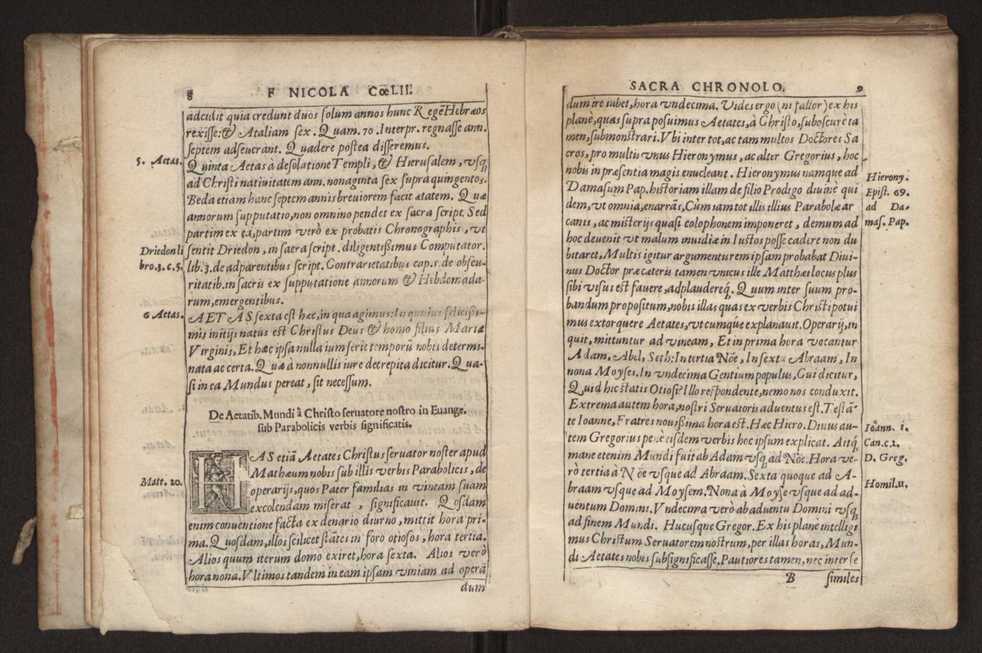 8 F NICOLA CœLII.
adcidit quia credunt duos solum annos hunc Regē Hebræos
rexisse: & Ataliam sex. Quam. 70. Interpr. regnasse ann.
septem adseuerant. Qua de re postea disseremus.
5. Aetas. Quinta Aetas à desolatione Templi, & Hierusalem, vsq;
ad Christi natiuitatem ann. nonaginta sex supra quingentos.
Beda etiam hanc septem annis breuiorem facit ætatem. Quæ
annorum supputatio, non omnino pendet ex sacra script. Sed
partim ex ea, partim verò ex probatis Chronographis, vt
Driedon li sentit Driedon, in sacra script. diligentissimus Computator.
bro. 3. c. 5. lib. 3. de adparentibus script. Contrarietatibus cap. 5. de obscu-
ritatib. in sacris ex supputatione annorum & Hebdomada-
rum, emergentibus.
6 Aetas. AETAS sexta est hæc, in qua agimus: In cuius felicissi-
mis initijs natus est Christus Deus & homo filius Mariæ
Virginis, Et hæc ipsa nulla iam serie temporū nobis determi-
nata ac certa. Quæ à nonnullis iure decrepita dicitur. Qua-
si in ea Mundus pereat, sit necessum.
De Aetatib. Mundi à Christo seruatore nostro in Euange.
sub Parabolicis verbis significatis.
HAS etiā Aetates Christus seruator noster apud
Matthæum nobis sub illis verbis Parabolicis, de
Matt. 20. operarijs, quos Pater familias in vineam suam
excolendam miserat, significauit. Quosdam
enim conuentione facta ex denario diurno, mittit hora pri-
ma. Quosdam, illos scilicet stātes in foro otiosos, hora tertia.
Alios quum iterum domo exiret, hora sexta. Alios verò
hora nona. Vltimos tandem in eam ipsam viniam ad operā
dum
SACRA CHRONOLO. 9
dum ire iubet, hora vndecima. Vides ergo (ni fallor) ex his
planè, quas supra posuimus Aetates, à Christo, subobscurè ta
men, submonstrari. Vbi inter tot, ac tam multos Doctores Sa
cros, pro multis vnus Hieronymus, ac alter Gregorius, hoc
nobis in præsentia magis enucleant. Hieronymus namque ad
Hierony. Epist. 69. ad Da- mas. Pap.
Damasum Pap. historiam illam de filio Prodigo diuinè qui
dem, vt omnia, enarrās, Cùm iam tot illis illius Parabolæ ar
canis, ac misterijs quasi colophonem imponeret, demum ad
hoc deuenit vt malum inuidiæ in Iustos posse cadere non du
bitaret, Multis igitur argumentis rem ipsam probabat Diui-
nus Doctor præ cateris tamen vnicus ille Matthæi locus plus
sibi visus est fauere, adplaudereq;. Quum inter suum pro-
bandum propositum, nobis illas quas ex verbis Christi potui
mus extorquere Aetates, vtcumque explanauit. Operarij, in
quit, mittuntur ad vineam, Et in prima hora vocantur
Adam, Abel, Seth: In tertia Nöe, In sexta Abraam, In
nona Moyses. In vndecima Gentium populus, Cui dicitur,
Quid hic statis Otiosi? Illo respondente, nemo nos conduxit.
Extrema autem hora, nostri Seruatoris aduentus est. Testā-
te Ioanne, Fratres nouissima hora est. Hæc Hiero. Diuus au-
Ioann. 1. Can. c. 2.
tem Gregorius penè eisdem verbis hoc ipsum explicat. Aitq;
mane etenim Mundi fuit ab Adam vsq; ad Nöe. Hora ve-
D. Greg.
rò tertia à Nöe vsque ad Abraam. Sexta quoque ad A-
braam vsque ad Moysem. Nona à Moyse vsque ad ad-
Homil. 11.
uentum Domini. Vndecima verò ab aduentu Domini vsq;
ad finem Mundi. Hucusque Gregor. Ex his planè intelligi
mus Christum Seruatorem nostrum, per illas horas, Mun-
di Aetates nobis subsignificasse. Pautiores tamen, nec inter se
B similes